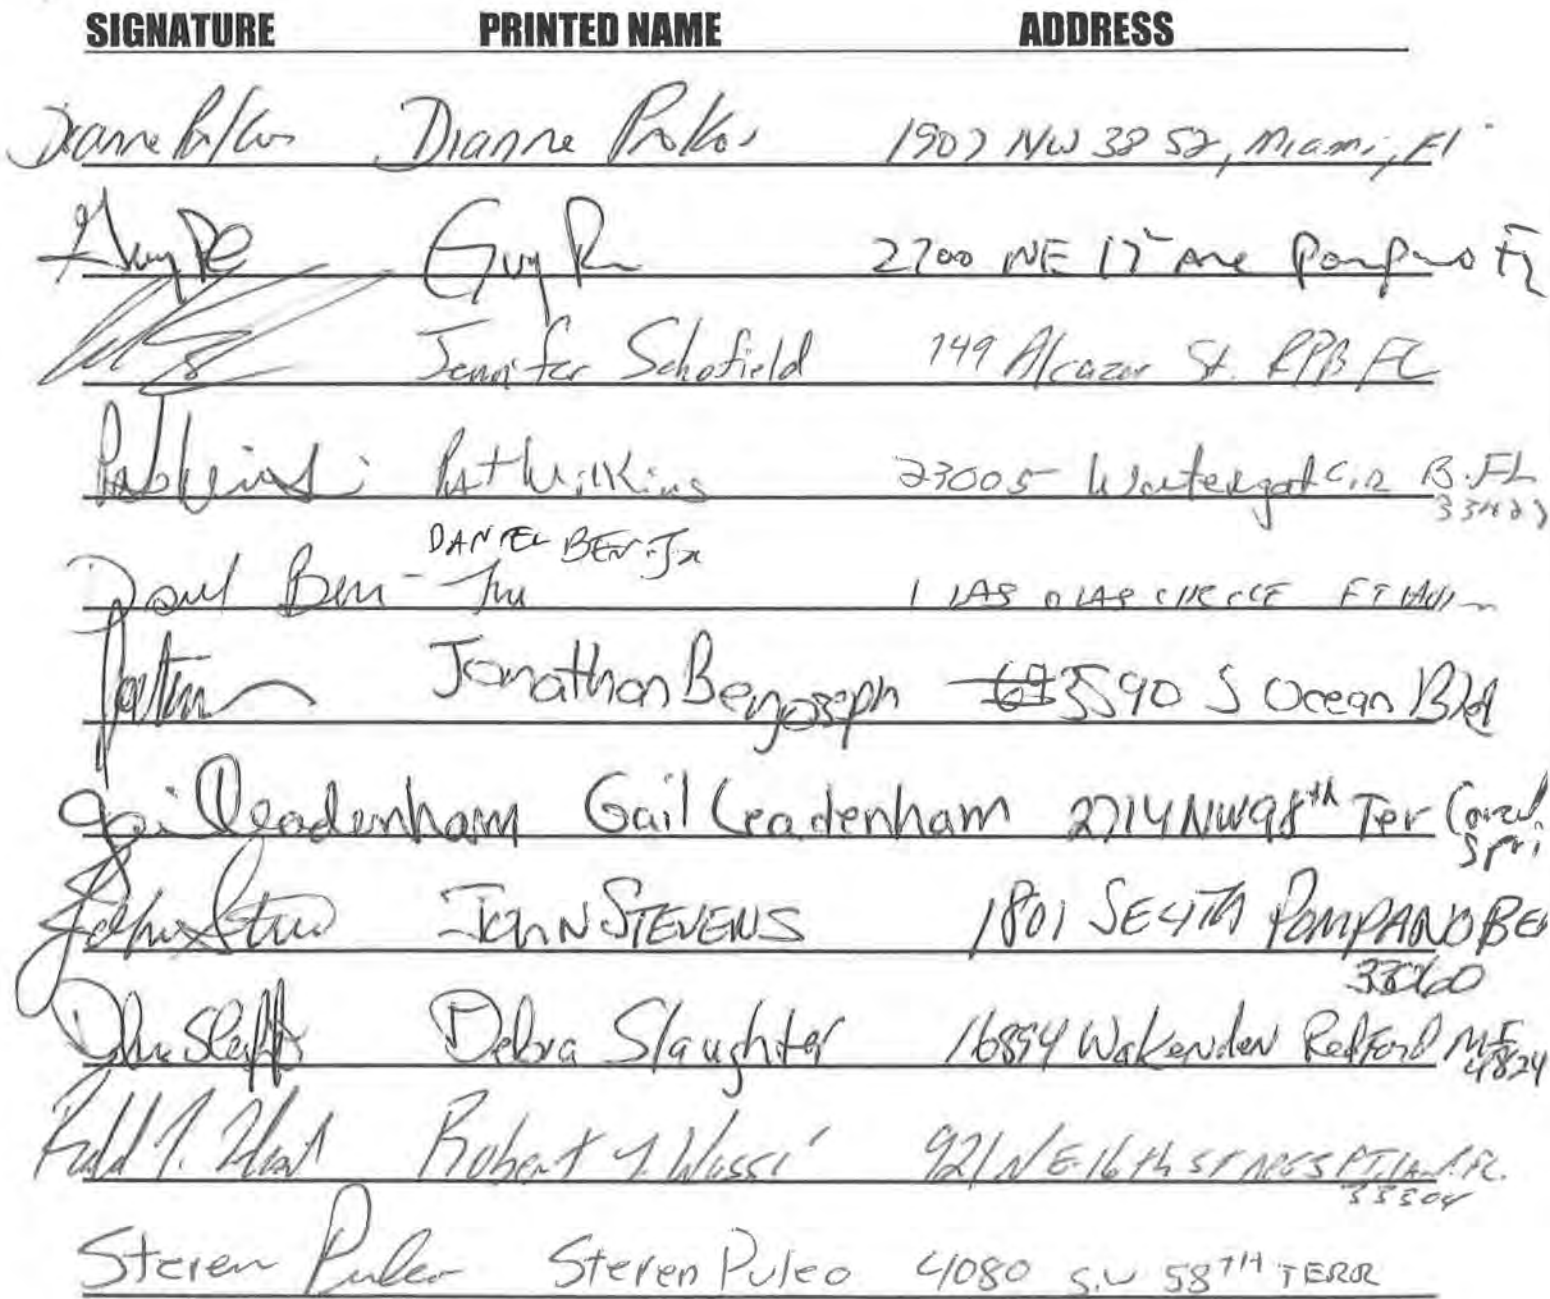 SIGNATURE PRINTED NAME ADDRESS
Dianne Dianne 1907 NW 38 St, Miami, Fl
Guy Guy 2700 NE 17 Ave Pompano FL
Jennifer Schofield 149 Alcazar St. RPB FL
Pat Wilkins 23005 Watergate Cir B. FL
DANIEL BEN-
Ben- 1 LAS OLAS CIRCLE FT LAUD
Jonathan Benjoseph 3590 S Ocean Blvd
Gail Leadenham Gail Leadenham 2714 NW 98th Ter Coral
Spri
John JOHN STEVENS 1801 SE 4TH POMPANO BE
33060
Debra Slaughter Redford MI
4824
Robert J. 921 NE 16th ST FT. Laud. FL.
33304
Steven Puleo Steven Puleo 4080 S.W 58TH TERR